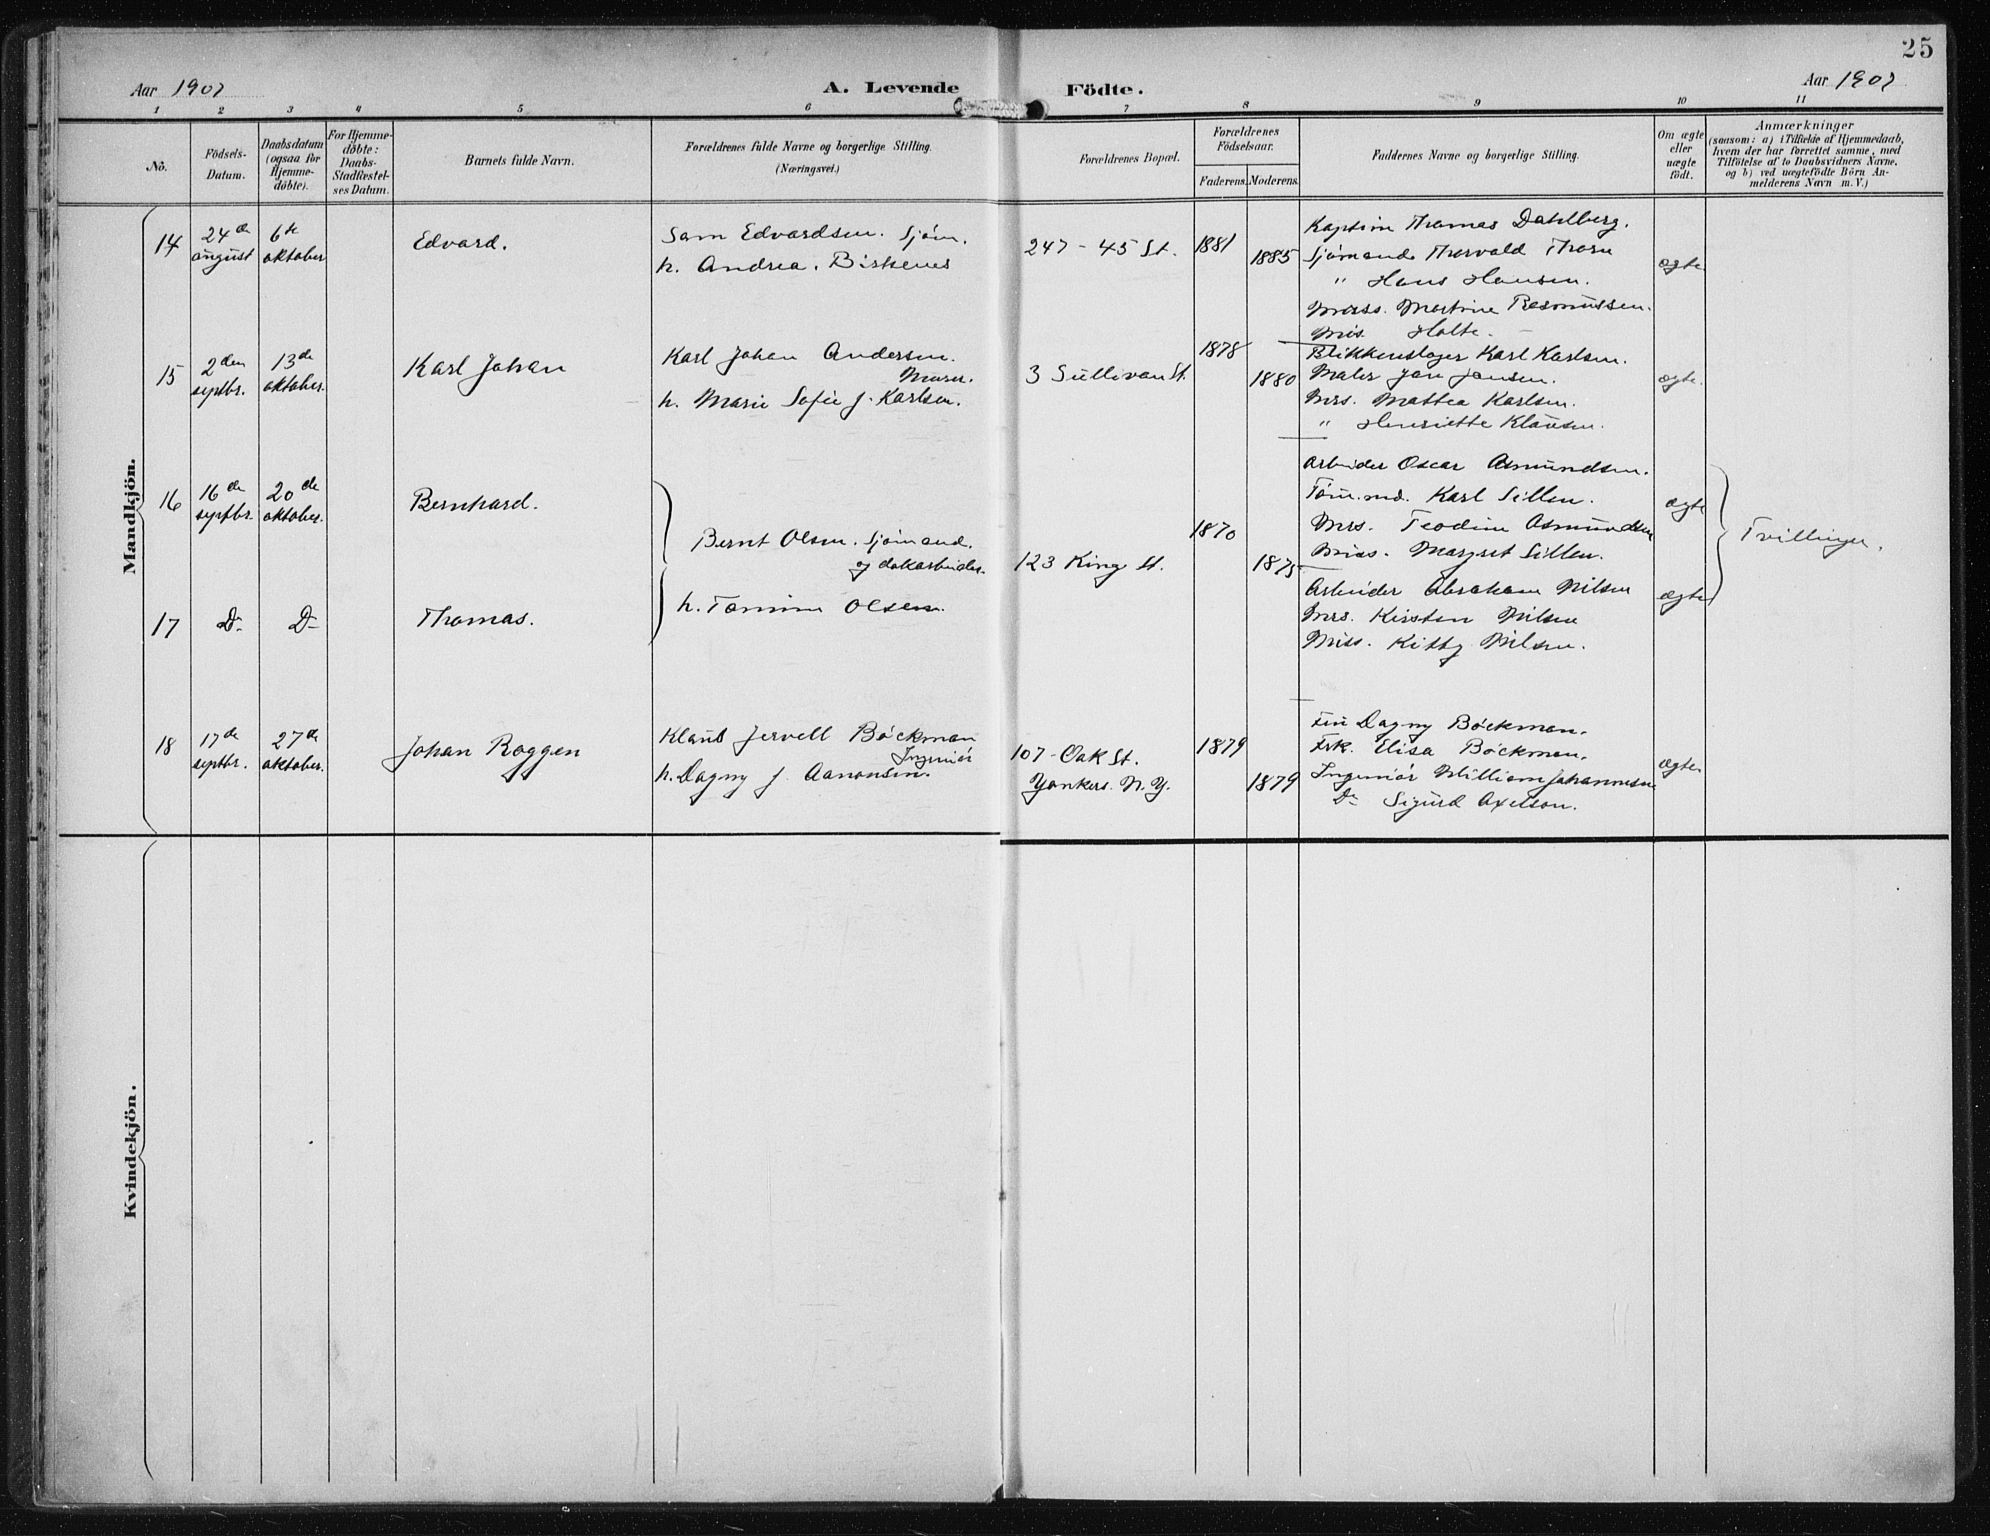 25
Aar 1907
A. Levende Födte.
Aar 1907
1 2 3 4 5 6 7 8 9 10 11
No.
Födsels-
Datum.
Daabsdatum
(ogsaa for
Hjemme-
döbte).
For Hjemme-
döbte:
Daabs-
Stadfæstel-
ses Datum.
Barnets fulde Navn.
Forældrenes fulde Navne og borgerlige Stilling.
(Næringsvei.)
Forældrenes Bopæl.
Forældrenes
Födselsaar.
Faderens.
Moderens.
Faddernes Navne og borgerlige Stilling.
Om ægte
eller
uægte
födt.
Anmærkninger
(saasom: a) i Tilfælde af Hjemmedaab,
hvem der har forrettet samme, med
Tilföielse af to Daabsvidners Navne,
og b) ved uægtefödte Börn An-
melderens Navn m. V.)
Mandkjön.
14
24de
august
6te
oktober
Edvard.
Sam Edvardsen. Sjøm.
h. Andrea. Birkenes
247 - 45 St.
1881
1885
Kaptein Thomas Dahlberg.
Sjømand Thorvald Thorn
" Hans Hansen.
Martine Rasmussen.
Holte.
ægte
15
2den
septbr.
13de
oktober.
Karl Johan
Karl Johan Andersen.
Murer.
h. Marie Sofie J. Karlsen.
3 Sullivan St.
1878
1880
Blikkenslager Karl Karlsen.
Maler Jan Jansen.
Mrs. Mattea Karlsen.
" Henriette Klausen.
ægte.
16
16de
septbr.
20de
oktober.
Bernhard.
Bernt Olsen. Sjømand.
og dokarbeider.
h. Tomine Olsen.
123 King St.
1870
1875
Arbeider Oscar Asmundsen.
Tøm.md. Karl Sillen.
Mrs. Teodine Asmundsen
Miss. Margret Sillen.
ægte
Tvillinger.
17
Do
Do
Thomas.
Arbeider Abraham Nilsen
Mrs. Kirsten Nilsen
Miss. Kitty Nilsen.
ægte
18
17de
septbr.
27de
oktober.
Johan Roggen
Klaus Jervell Böckman
Ingeniør
h. Dagny J. Aanonsen.
107 - Oak St.
Yonkers. N. Y.
1879
1879
Fru Dagny Böckman.
Frk. Elisa Böckman.
Ingeniør William Johannesen
Do Sigurd Axelson.
ægte
Kvindekjön.